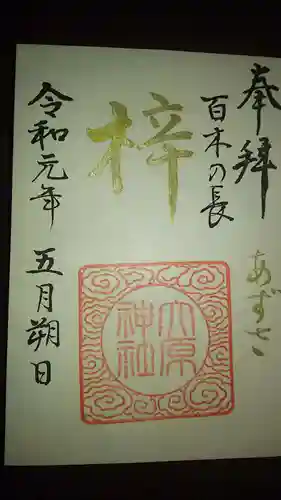 奉拝
百木の長
あずさ
梓
大原
神社
令和元年
五月朔日